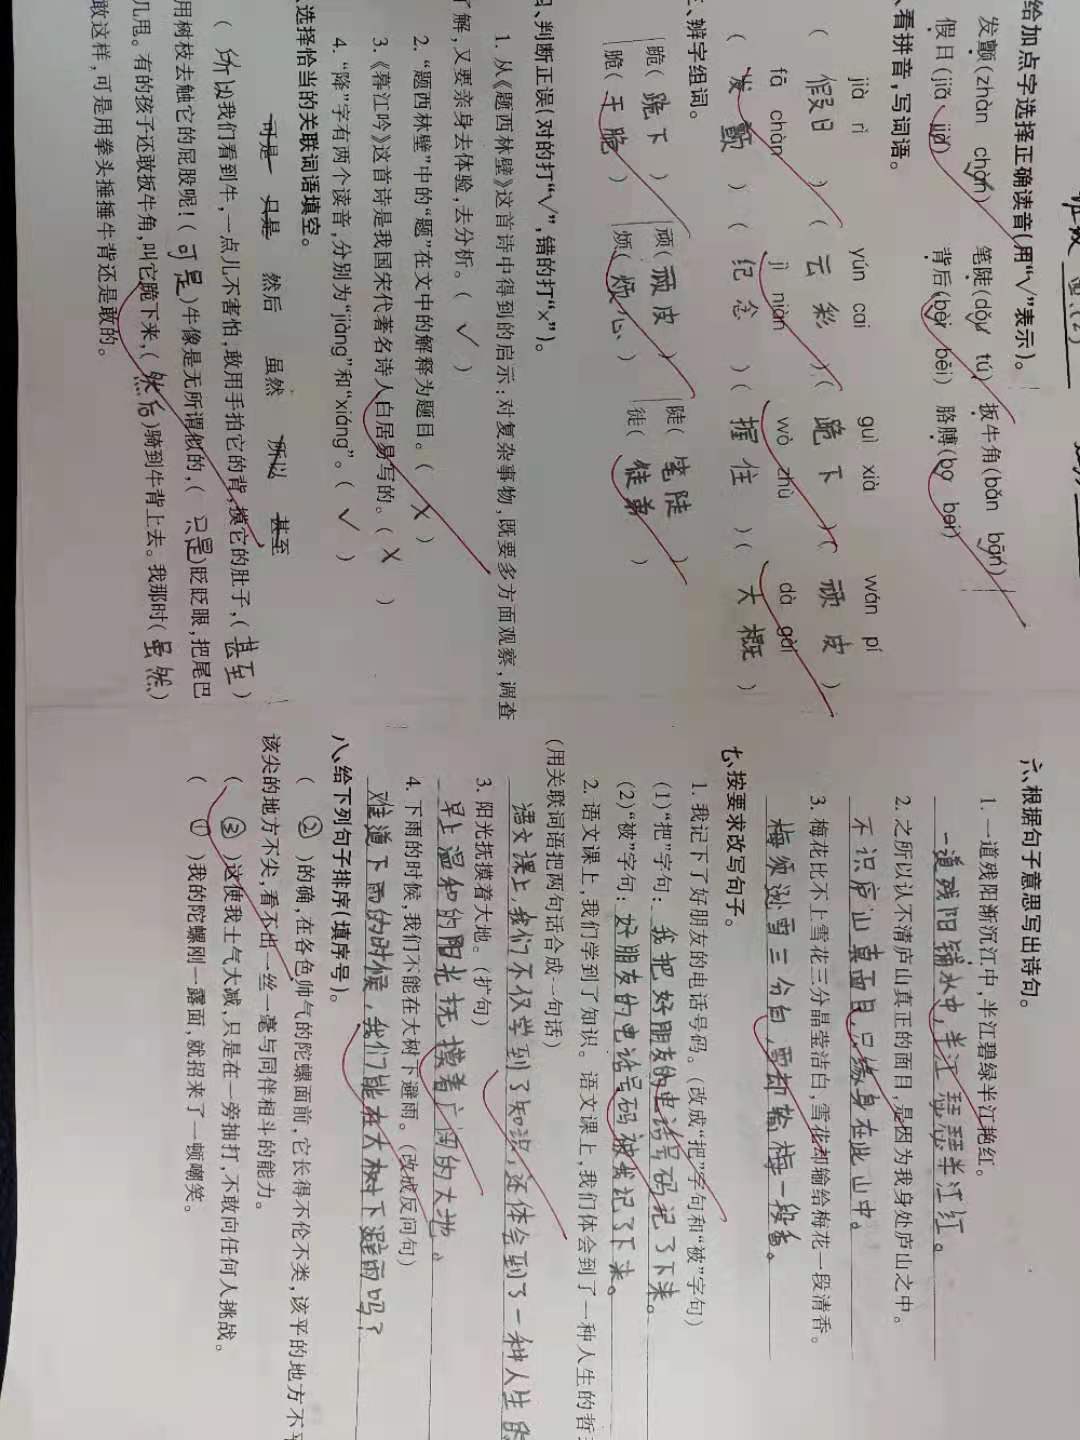 给加点字选择正确读音(用“√”表示)。
发颤(zhàn chàn) 笔陡(dǒu tú) 扳牛角(bǎn bān)
假日(jiǎ jià) 背后(bèi bēi) 胳膊(bo bei)
、看拼音,写词语。
jià rì yún cai guì xià wán pí
(假日)(云彩)(跪下)(顽皮)
fā chàn jì niàn wò zhù dà gài
(发颤)(纪念)(握住)(大概)
三、辨字组词。
跪(跪下) 顽(顽皮) 陡(笔陡)
脆(干脆) 烦(烦心) 徒(徒弟)
四、判断正误(对的打“√”,错的打“×”)。
1. 从《题西林壁》这首诗中得到的启示:对复杂事物,既要多方面观察,调查
了解,又要亲身去体验,去分析。(√)
2. “题西林壁”中的“题”在文中的解释为题目。(X)
3. 《暮江吟》这首诗是我国宋代著名诗人白居易写的。(X)
4. “降”字有两个读音,分别为“jiàng”和“xiáng”。(√)
选择恰当的关联词语填空。
可是 只是 然后 虽然 所以 甚至
(所以)我们看到牛,一点儿不害怕,敢用手拍它的背,摸它的肚子,(甚至)
用树枝去触它的屁股呢!(可是)牛像是无所谓似的,(只是)眨眨眼,把尾巴
几甩。有的孩子还敢扳牛角,叫它跪下来,(然后)骑到牛背上去。我那时(虽然)
敢这样,可是用拳头捶捶牛背还是敢的。
六、根据句子意思写出诗句。
1. 一道残阳渐沉江中,半江碧绿半江艳红。
一道残阳铺水中,半江瑟瑟半江红。
2. 之所以认不清庐山真正的面目,是因为我身处庐山之中。
不识庐山真面目,只缘身在此山中。
3. 梅花比不上雪花三分晶莹洁白,雪花却输给梅花一段清香。
梅须逊雪三分白,雪却输梅一段香。
七、按要求改写句子。
1. 我记下了好朋友的电话号码。(改成“把”字句和“被”字句)
(1)“把”字句:我把好朋友的电话号码记了下来。
(2)“被”字句:好朋友的电话号码被我记了下来。
2. 语文课上,我们学到了知识。语文课上,我们体会到了一种人生的哲
(用关联词语把两句话合成一句话)
语文课上,我们不仅学到了知识,还体会到了一种人生的
3. 阳光抚摸着大地。(扩句)
早上温和的阳光抚摸着广阔的大地。
4. 下雨的时候,我们不能在大树下避雨。(改成反问句)
难道下雨的时候,我们能在大树下避雨吗?
八、给下列句子排序(填序号)。
(②)的确,在各色帅气的陀螺面前,它长得不伦不类,该平的地方不平
该尖的地方不尖,看不出一丝一毫与同伴相斗的能力。
(③)这使我士气大减,只是在一旁抽打,不敢向任何人挑战。
(①)我的陀螺刚一露面,就招来了一顿嘲笑。